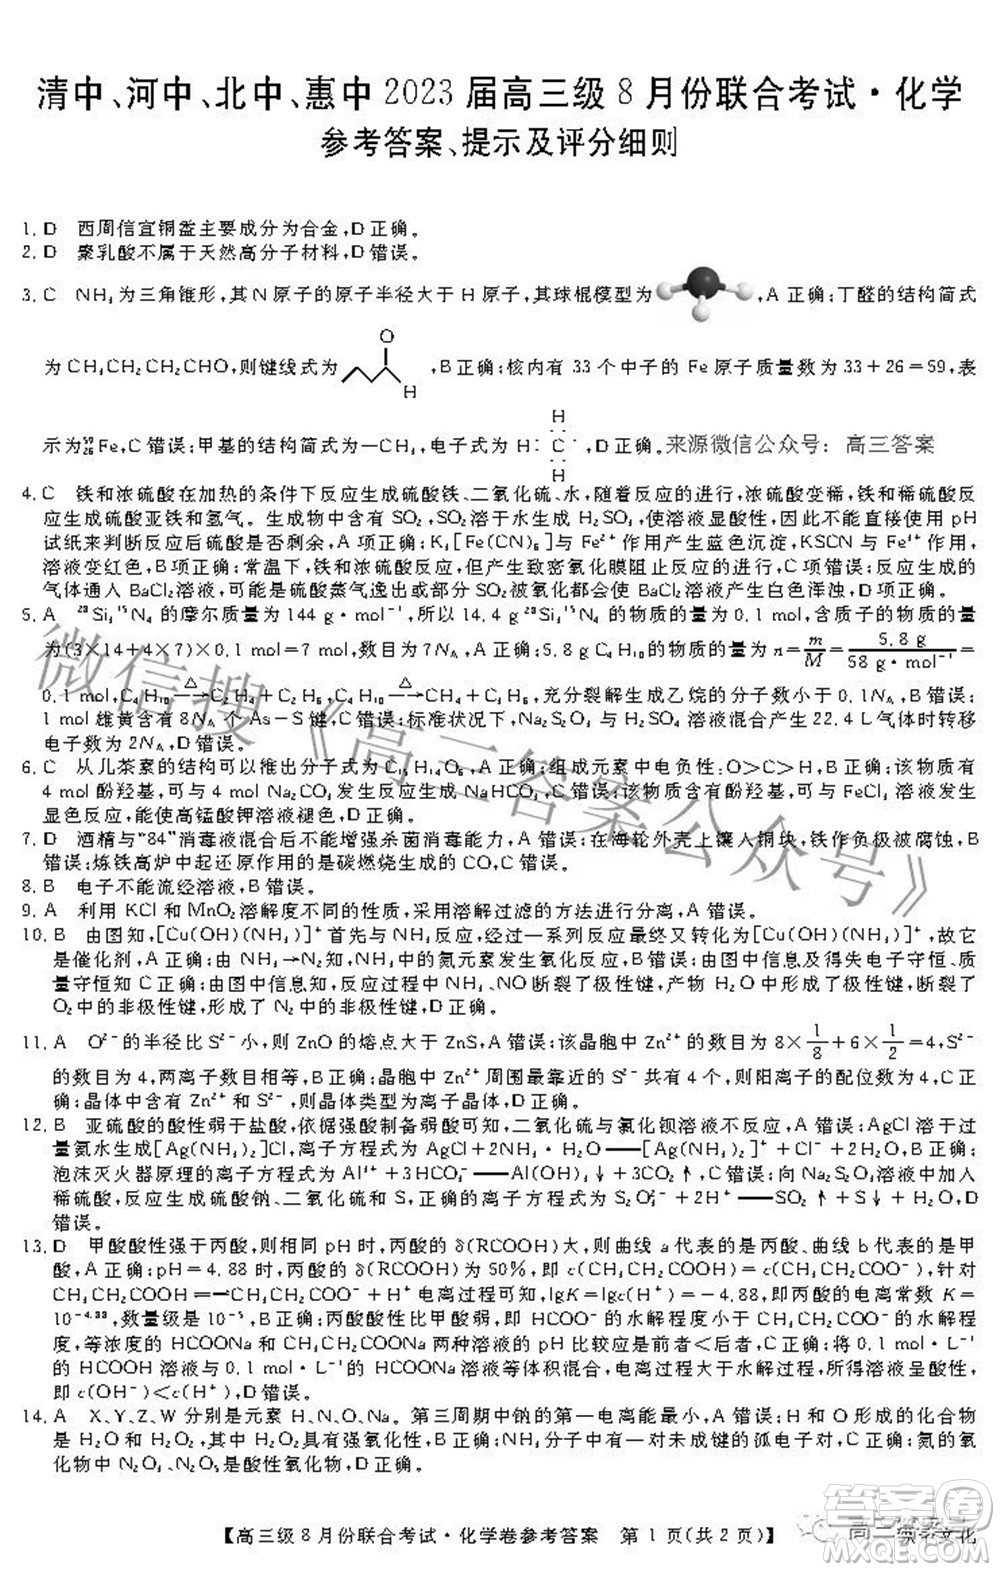 清中、河中、北中、惠中 2023 届高三级 8 月份联合考试·化学
参考答案、提示及评分细则
1. D　西周信宜铜盉主要成分为合金,D正确。
2. D　聚乳酸不属于天然高分子材料,D 错误。
3. C　NH₃为三角锥形,其N原子的原子半径大于H原子,其球棍模型为 ,A 正确;丁醛的结构简式
为 CH₃CH₂CH₂CHO,则键线式为 O H ,B正确;核内有 33 个中子的 Fe 原子质量数为 33+26=59,表
示为⁵⁹₂₆Fe,C 错误;甲基的结构简式为—CH₃,电子式为 H:C:H H ,D 正确。 来源微信公众号：高三答案
4. C　铁和浓硫酸在加热的条件下反应生成硫酸铁、二氧化硫、水,随着反应的进行,浓硫酸变稀,铁和稀硫酸反
应生成硫酸亚铁和氢气。生成物中含有 SO₂,SO₂溶于水生成 H₂SO₃,使溶液显酸性,因此不能直接使用 pH
试纸来判断反应后硫酸是否剩余,A 项正确;K₃[Fe(CN)₆]与 Fe²⁺作用产生蓝色沉淀,KSCN 与 Fe³⁺作用,
溶液变红色,B项正确;常温下,铁和浓硫酸反应,但产生致密氧化膜阻止反应进行。C 项错误;反应生成的
气体通入 BaCl₂溶液,可能是硫酸蒸气逸出或 SO₂被氧化都会使 BaCl₂溶液产生白色浑浊,D 项正确。
5. A　²⁸Si₃¹⁵N₄的摩尔质量为 144 g·mol⁻¹,所以 14.4 g²⁸Si₃¹⁵N₄的物质的量为 0.1 mol,含质子的物质的量
为(3×14+4×7)×0.1 mol=7 mol,数目为 7Nₐ,A 正确;5.8 g C₄H₁₀的物质的量为 n=m/M=5.8 g/58 g·mol⁻¹=
0.1 mol,C₄H₁₀ —△→C₂H₄+C₂H₆,C₄H₁₀ —△→CH₄+C₃H₆,充分裂解生成乙烷的分子数小于 0.1Nₐ,B 错误;
1 mol 雄黄含有 8Nₐ个 As—S 键,C 错误;标准状况下,Na₂S₂O₃与 KMnO₄溶液混合产生 22.4 L气体时转移
电子数为 2Nₐ,D 错误。
6. C　从儿茶素的结构可以推出分子式为 C₁₅H₁₄O₆,A 正确;组成元素中电负性:O>C>H,B正确;该物质有
4 mol 酚羟基,可与 4 mol Na₂CO₃发生反应生成 NaHCO₃,C 错误;该物质含有酚羟基,可与 FeCl₃溶液发生
显色反应,能使高锰酸钾溶液褪色,D 正确。
7. D　酒精与“84”消毒液混合后不能增强杀菌消毒能力,A 错误;在海轮外壳上镶入铜块,铁作负极被腐蚀,B
错误;炼铁高炉中起还原作用的是碳燃烧生成的 CO,C 错误。
8. B　电子不能流经溶液,B错误。
9. A　利用 KCl 和 MnO₂溶解度不同的性质,采用溶解过滤的方法进行分离,A 错误。
10. B　由图知,[Cu(OH)(NH₃)]⁺首先与 NH₃反应,经过一系列反应最终又转化为[Cu(OH)(NH₃)]⁺,故它
是催化剂,A 正确;由 NH₃→N₂知,NH₃中的氮元素发生氧化反应,B错误;由图中信息及得失电子守恒、质
量守恒知 C 正确;由图中信息知,反应过程中 NH₃、NO 断裂了极性键,产物 H₂O 中形成了极性键,断裂了
O₂中的非极性键,形成了 N₂中的非极性键,D 正确。
11. A　O²⁻的半径比 S²⁻小,则 ZnO 的熔点大于 ZnS,A 错误;该晶胞中 Zn²⁺的数目为 8×1/8+6×1/2=4,S²⁻
的数目为 4,两离子数目相等,B正确;晶胞中 Zn²⁺周围最靠近的 S²⁻共有 4 个,则阳离子的配位数为 4,C 正
确;晶体中含有 Zn²⁺和 S²⁻,则晶体类型为离子晶体,D 正确。
12. B　亚硫酸的酸性弱于盐酸,依据强酸制备弱酸可知,二氧化硫与氯化钡溶液不反应,A 错误;AgCl 溶于过
量氨水生成[Ag(NH₃)₂]Cl,离子方程式为 AgCl+2NH₃·H₂O══[Ag(NH₃)₂]⁺+Cl⁻+2H₂O,B 正确;
泡沫灭火器原理的离子方程式为 Al³⁺+3HCO₃⁻══Al(OH)₃↓+3CO₂↑,C 错误;向 Na₂S₂O₃溶液中加入
稀硫酸,反应生成硫酸钠、二氧化硫和 S,正确的离子方程式为 S₂O₃²⁻+2H⁺══SO₂↑+S↓+H₂O,D
错误。
13. D　甲酸酸性强于丙酸,则相同 pH 时,丙酸的 δ(RCOOH)大,则曲线 a 代表的是丙酸、曲线 b 代表的是甲
酸,A 正确;pH=4.88 时,丙酸的 δ(RCOOH)为 50%,即 c(CH₃CH₂COOH)=c(CH₃CH₂COO⁻),针对
CH₃CH₂COOH⇌CH₃CH₂COO⁻+H⁺电离过程可知,lgK=lgc(H⁺)=−4.88,即丙酸的电离常数 K=
10⁻⁴·⁸⁸,数量级是 10⁻⁵,B正确;电离的酸性比甲酸弱,即 HCOO⁻的水解程度小于 CH₃CH₂COO⁻的水解程
度,等浓度的 HCOONa 和 CH₃CH₂COONa 两种溶液的 pH 比较应是前者<后者,C 正确;将 0.1 mol·L⁻¹
的 HCOOH 溶液与 0.1 mol·L⁻¹的 HCOONa 溶液等体积混合,电离过程大于水解过程,所得溶液呈酸性,
即 c(OH⁻)<c(H⁺),D 错误。
14. A　X、Y、Z、W 分别是元素 H、N、O、Na。第三周期中钠的第一电离能最小,A 错误;H 和 O 形成的化合物
是 H₂O 和 H₂O₂,其中 H₂O₂具有强氧化性,B 正确;NH₃分子中存在一对未成键的孤电子对,C 正确;氮的氧
化物中 N₂O₃、N₂O₅是酸性氧化物,D 正确。
【高三级 8 月份联合考试·化学卷参考答案　第 1 页(共 2 页)】
微信搜《高三答案公众号》
答案卷